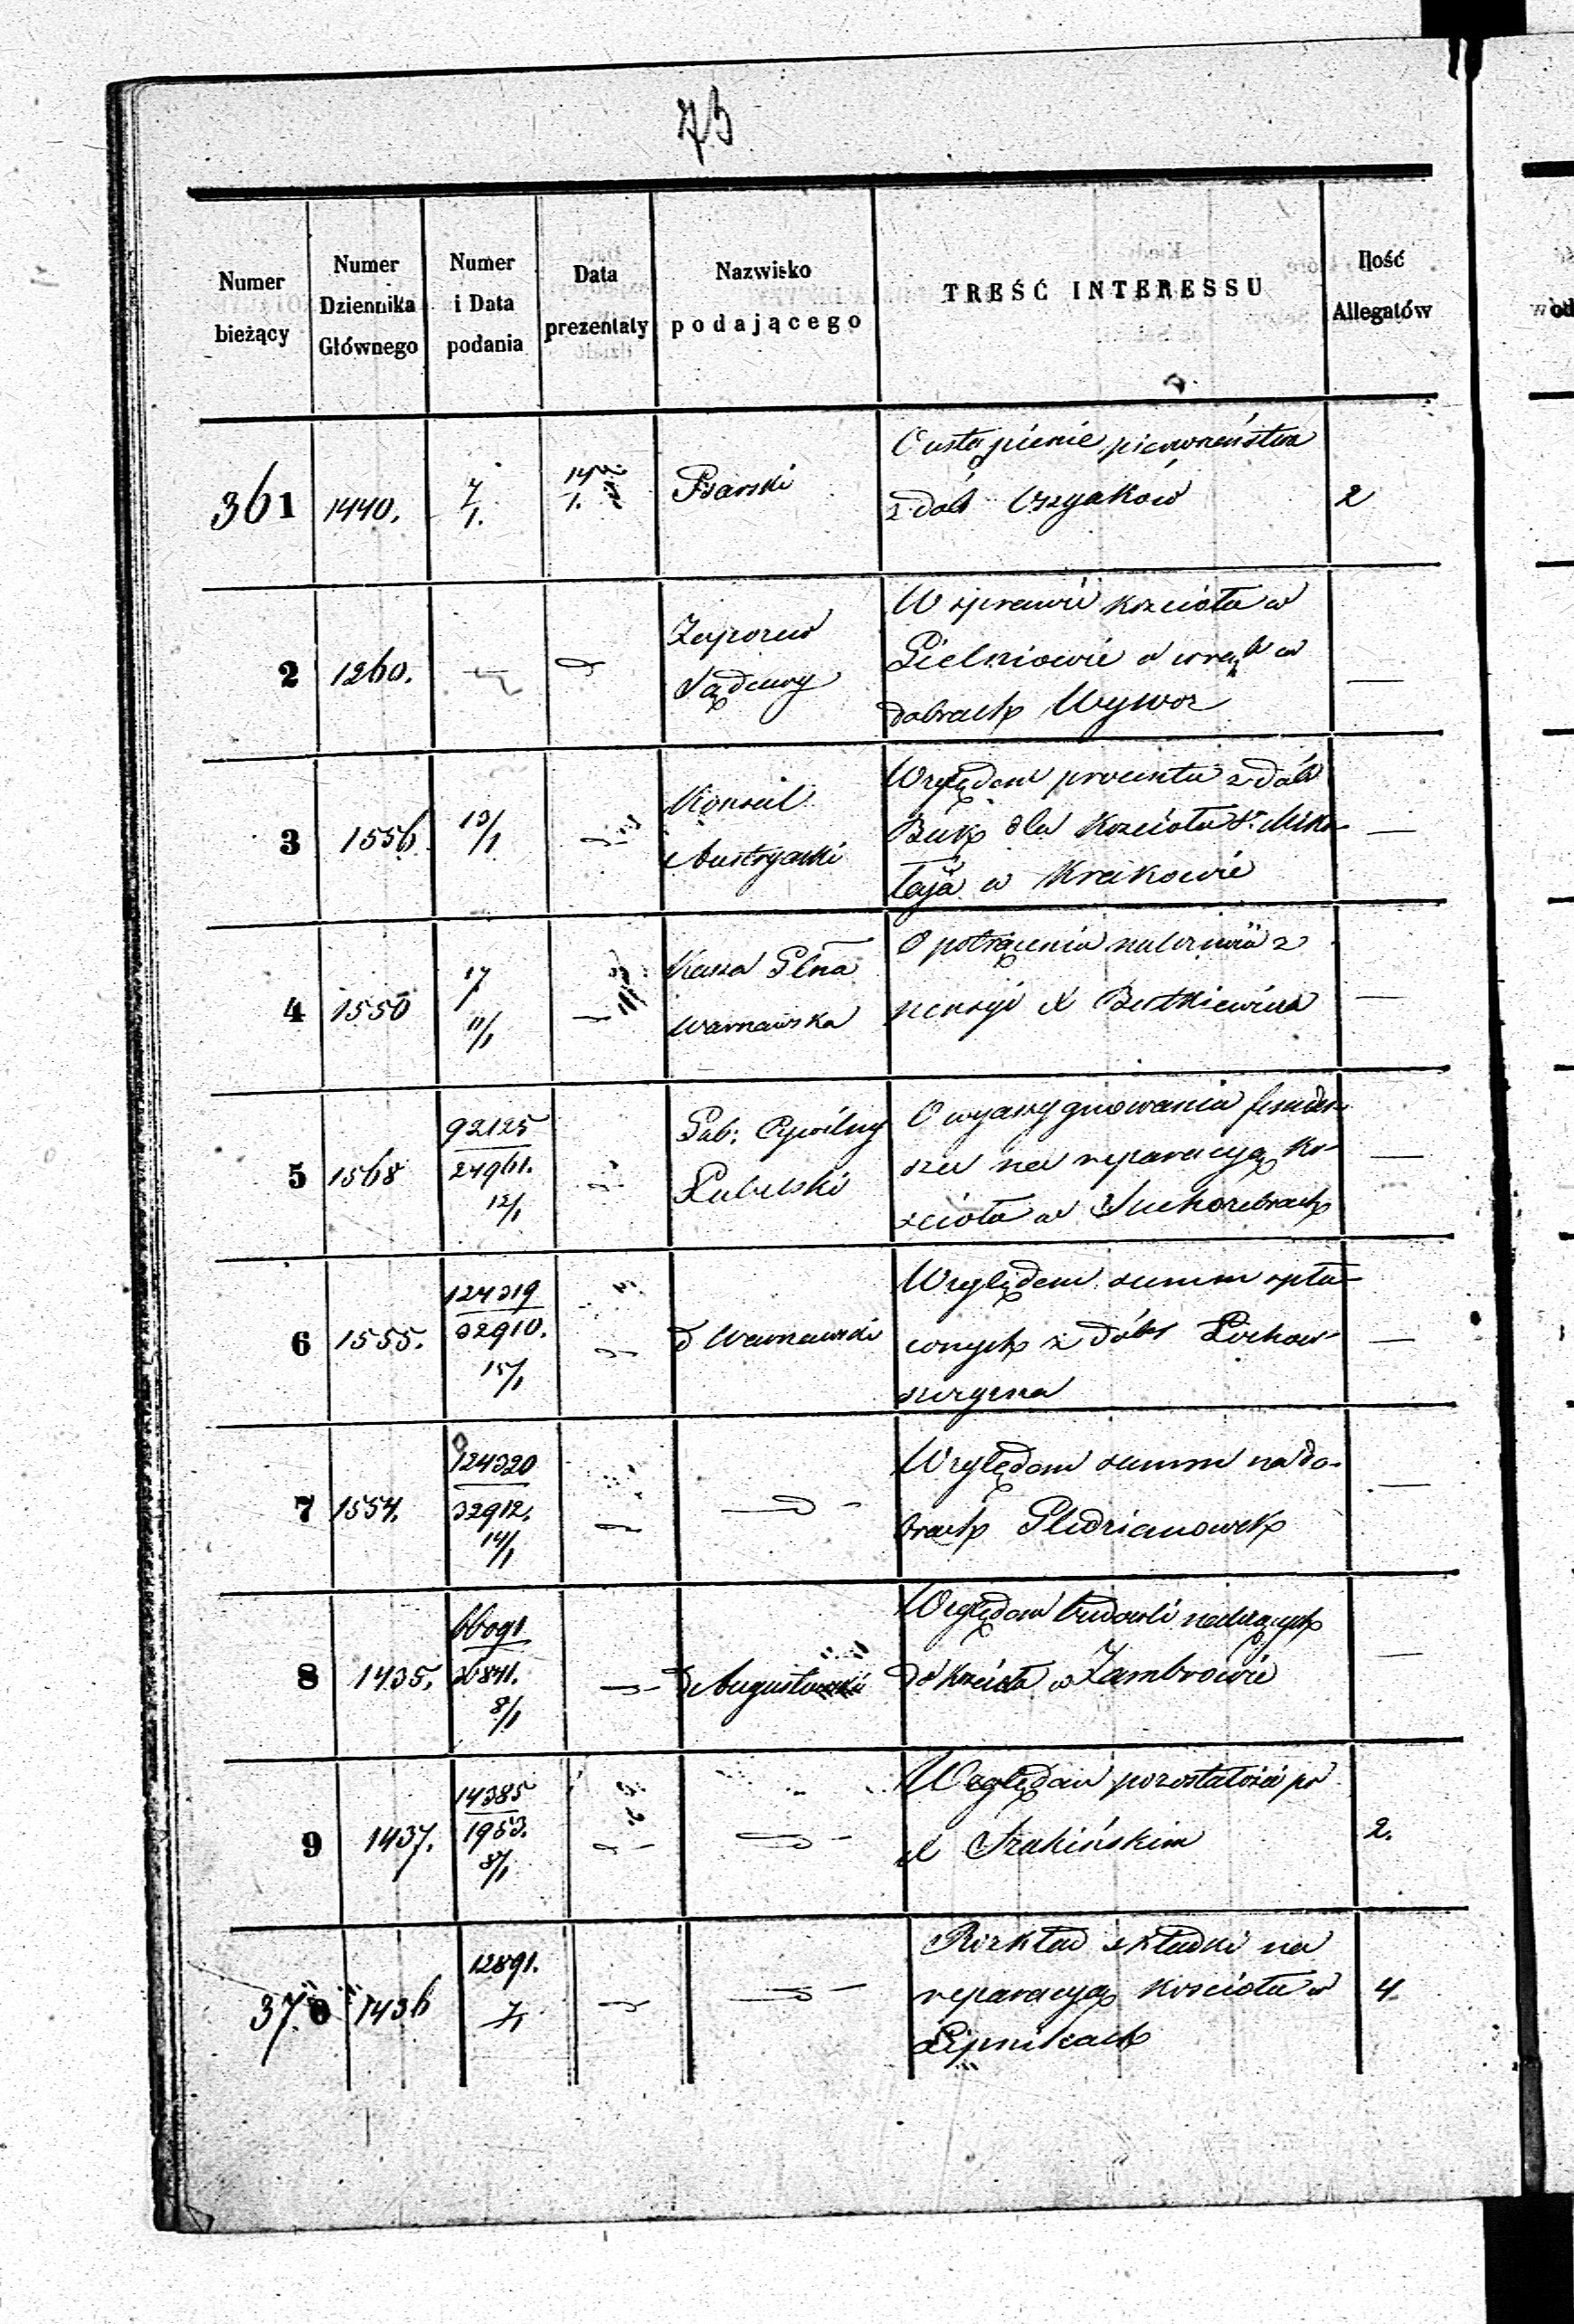 73
Numer bieżący
Numer Dziennika Głównego
Numer i Data podania
Data prezentaty
Nazwisko podającego
TREŚĆ INTERESSU
Ilość Allegatów
361 1440. 7/1. 14/1. Psarski
O ustąpienie pierwszeństwa
z dób Ossyaków
2
2 1260. —
Zaporew
Sądowy
W sprawie kościoła w
Gielniowie o wręb w
dobrach Wywoz
—
3 1556 13/1
Konsul
Austryacki
Względem procentu z dób
Buk dla Kościoła Sgo Miko-
łaja w Krakowie
—
4 1550 17 11/1
Kassa Głna
Warszawska
O potrącenia należności z
pensyi X Butkiewicza
—
5 1568 92125/24961. 12/1
Gub: Cywilny
Lubelski
O wyassygnowania fundu-
szu na reparacyą ko-
ścioła w Suchożebrach
—
6 1555. 124319/32910. 15/1
d Warszawski
Względem summ spła-
conych z dóbr Lochow-
—
7 1554. 124320/32912. 14/1
Względem summ na do-
brach Gledzianowek
—
8 1435. 66091/26841. 8/1
d Augustowski
Względem budowli należących
do kościoła w Zambrowie
—
9 1437. 14385/1953. 8/1
Względem pozostałości po
X
2.
370 1436 12891. 7/1
Rozkład składki na
reparacyą kościoła w
Lipnikach
4